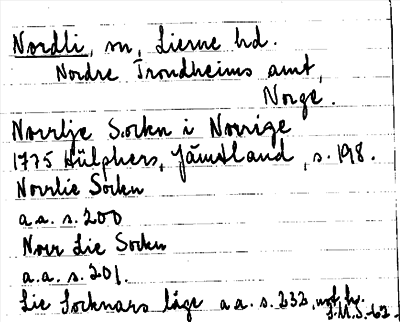 Nordli, sn, Lierne hd.
Nordre Trondheims amt,
Norge.
Norrlje Sockn i Norrige
1775 Hülphers, Jämtland, s. 198.
Norrlie Sockn
a.a. s. 200
Norr Lie Sockn
a.a. s. 201.
Lie Socknars läge a.a. s. 232,
S.M.S. -62-